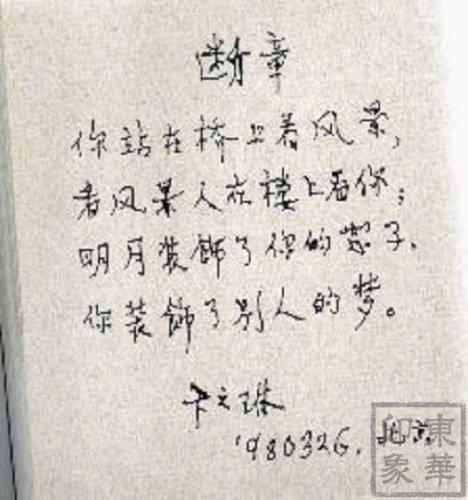 断章
你站在桥上看风景，
看风景人在楼上看你；
明月装饰了你的窗子，
你装饰了别人的梦。
卞之琳
'980326，北京
東華
印象